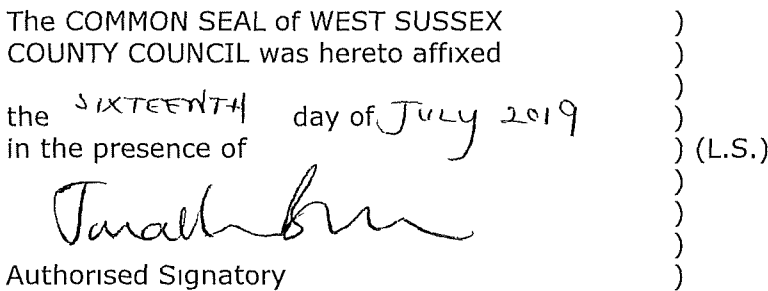 The COMMON SEAL of WEST SUSSEX )
COUNTY COUNCIL was hereto affixed )
)
the SIXTEENTH day of July 2019 )
in the presence of ) (L.S.)
)
)
)
Authorised Signatory )